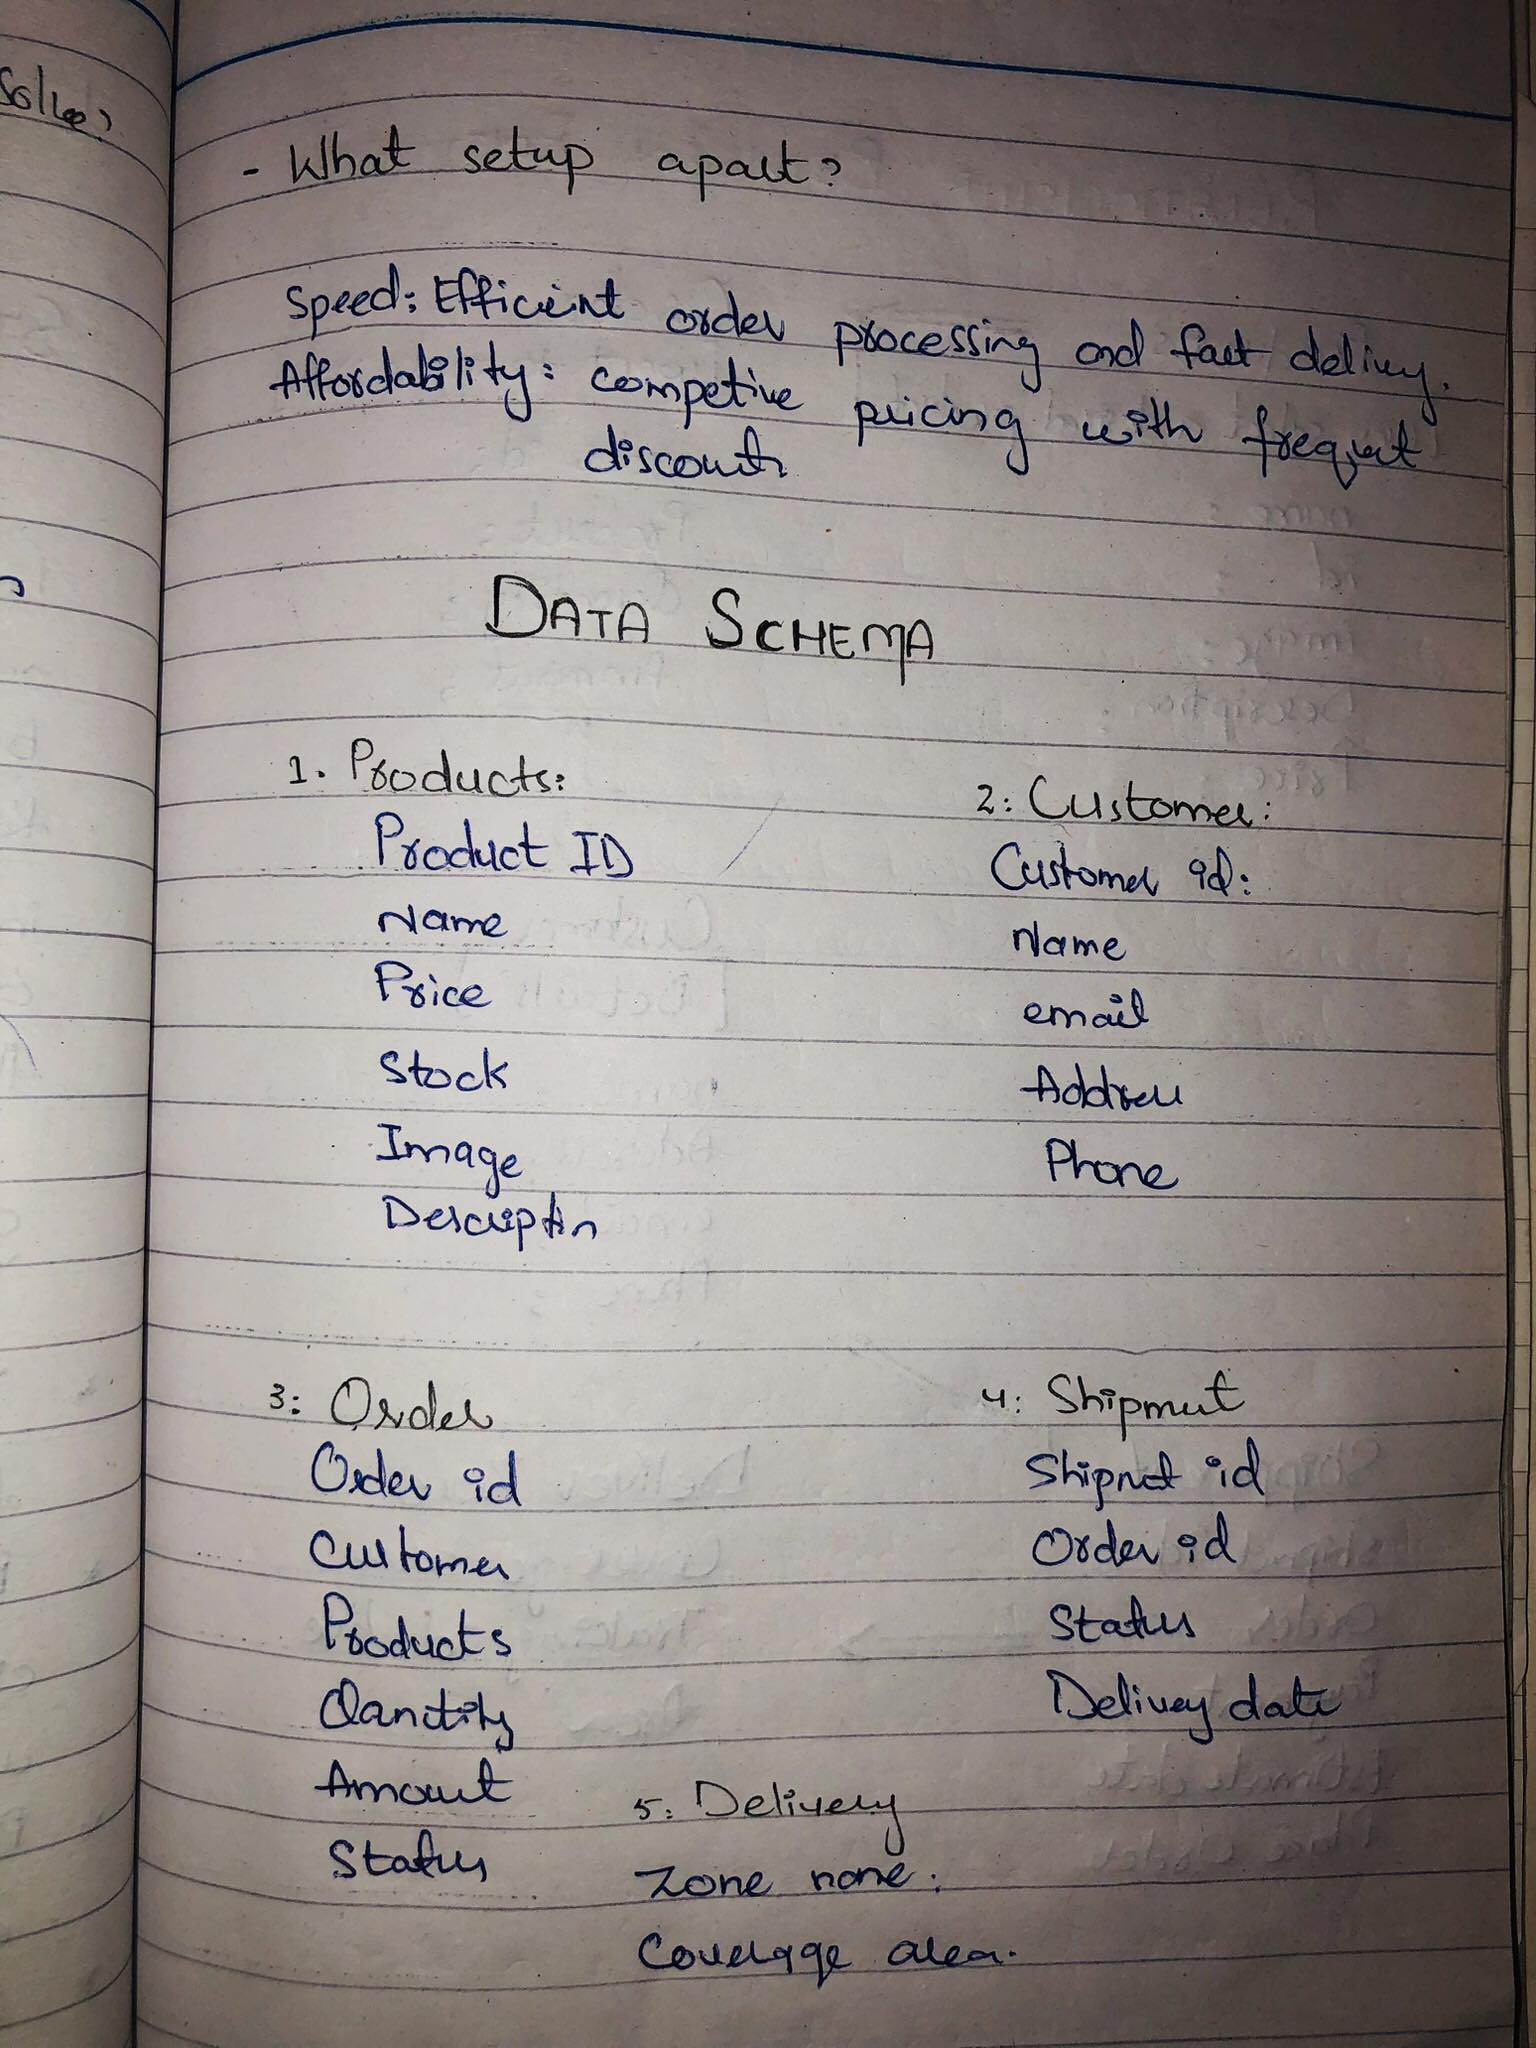 - What setup apart?
Speed: Efficient order processing and fast delivey.
Affordability: competive pricing with frequet
discounts
DATA SCHEMA
1. Products:
Product ID
Name
Price
Stock
Image
Descriptin
2: Customer:
Customer id:
Name
email
Address
Phone
3: Order
Order id
Customer
Products
Qanitity
Amount
Status
4: Shipmet
Shipmet id
Order id
Status
Delivey date
5: Delivery
Zone name:
Coverage area.